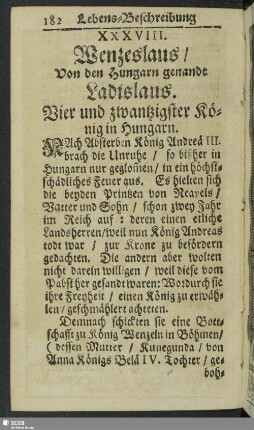 182 Lebens-Beschreibung
XXXVIII.
Wenzeslaus /
Von den Hungarn genandt
Ladislaus.
Vier und zwantzigster Kö-
nig in Hungarn.
NAch Absterben König Andreä III.
brach die Unruhe / so bißher in
Hungarn nur geglom̃en / in ein höchst-
schädliches Feuer aus. Es hielten sich
die beyden Printzen von Neapels /
Vatter und Sohn / schon zwey Jahr
im Reich auf: deren einen etliche
Landsherren / weil nun König Andreas
todt war / zur Krone zu befördern
gedachten. Die andern aber wolten
nicht darein willigen / weil diese vom
Pabst her gesandt waren: Wordurch sie
ihre Freyheit / einen König zu erwäh-
len / geschmählert achteten.
Demnach schickten sie eine Bott-
schafft zu König Wenzeln in Böhmen /
( dessen Mutter / Kunegunda / von
Anna Königs Belä IV. Tochter / ge-
boh-